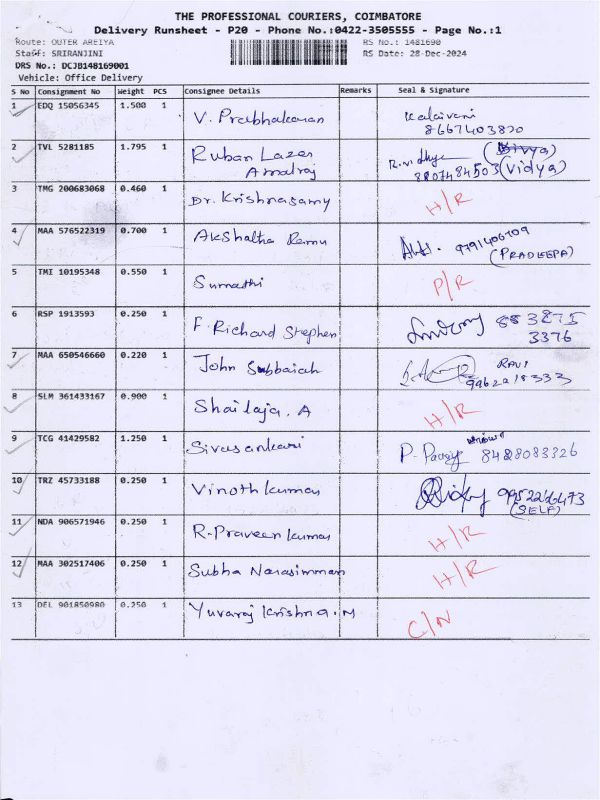 THE PROFESSIONAL COURIERS, COIMBATORE
Delivery Runsheet - P20 - Phone No.:0422-3505555 - Page No.:1
Route: OUTER AREIYA RS No.: 1481690
Staff: SRIRANJINI RS Date: 28-Dec-2024
DRS No.: DCJB148169001
Vehicle: Office Delivery
S No Consignment No Weight PCS Consignee Details Remarks Seal & Signature
1 EDQ 15056345 1.500 1 V. Prabhakaran Kalaivani
8667403820
2 TVL 5281185 1.795 1 Ruban Lazer R.vidhya (Divya)
Amalraj 8807484503 (Vidya)
3 TMG 200683068 0.460 1 Dr. Krishnasamy H/R
4 MAA 576522319 0.700 1 Akshatha Ramu 9791406709
(PRADEEPA)
5 TMI 10195348 0.550 1 Sumathi P/R
6 RSP 1913593 0.250 1 F. Richard Stephen 883875
3376
7 MAA 650546660 0.220 1 John Subbaiah RAVI
9962218333
8 SLM 361433167 0.900 1 Shailaja. A H/R
9 TCG 41429582 1.250 1 Sivasankari 8428083326
10 TRZ 45733188 0.250 1 Vinoth kumar 9952266473
(SELF)
11 NDA 906571946 0.250 1 R. Praveen kumar H/R
12 MAA 302517406 0.250 1 Subha Narasimman H/R
13 DEL 901850980 0.250 1 Yuvaraj Krishna.M C/N